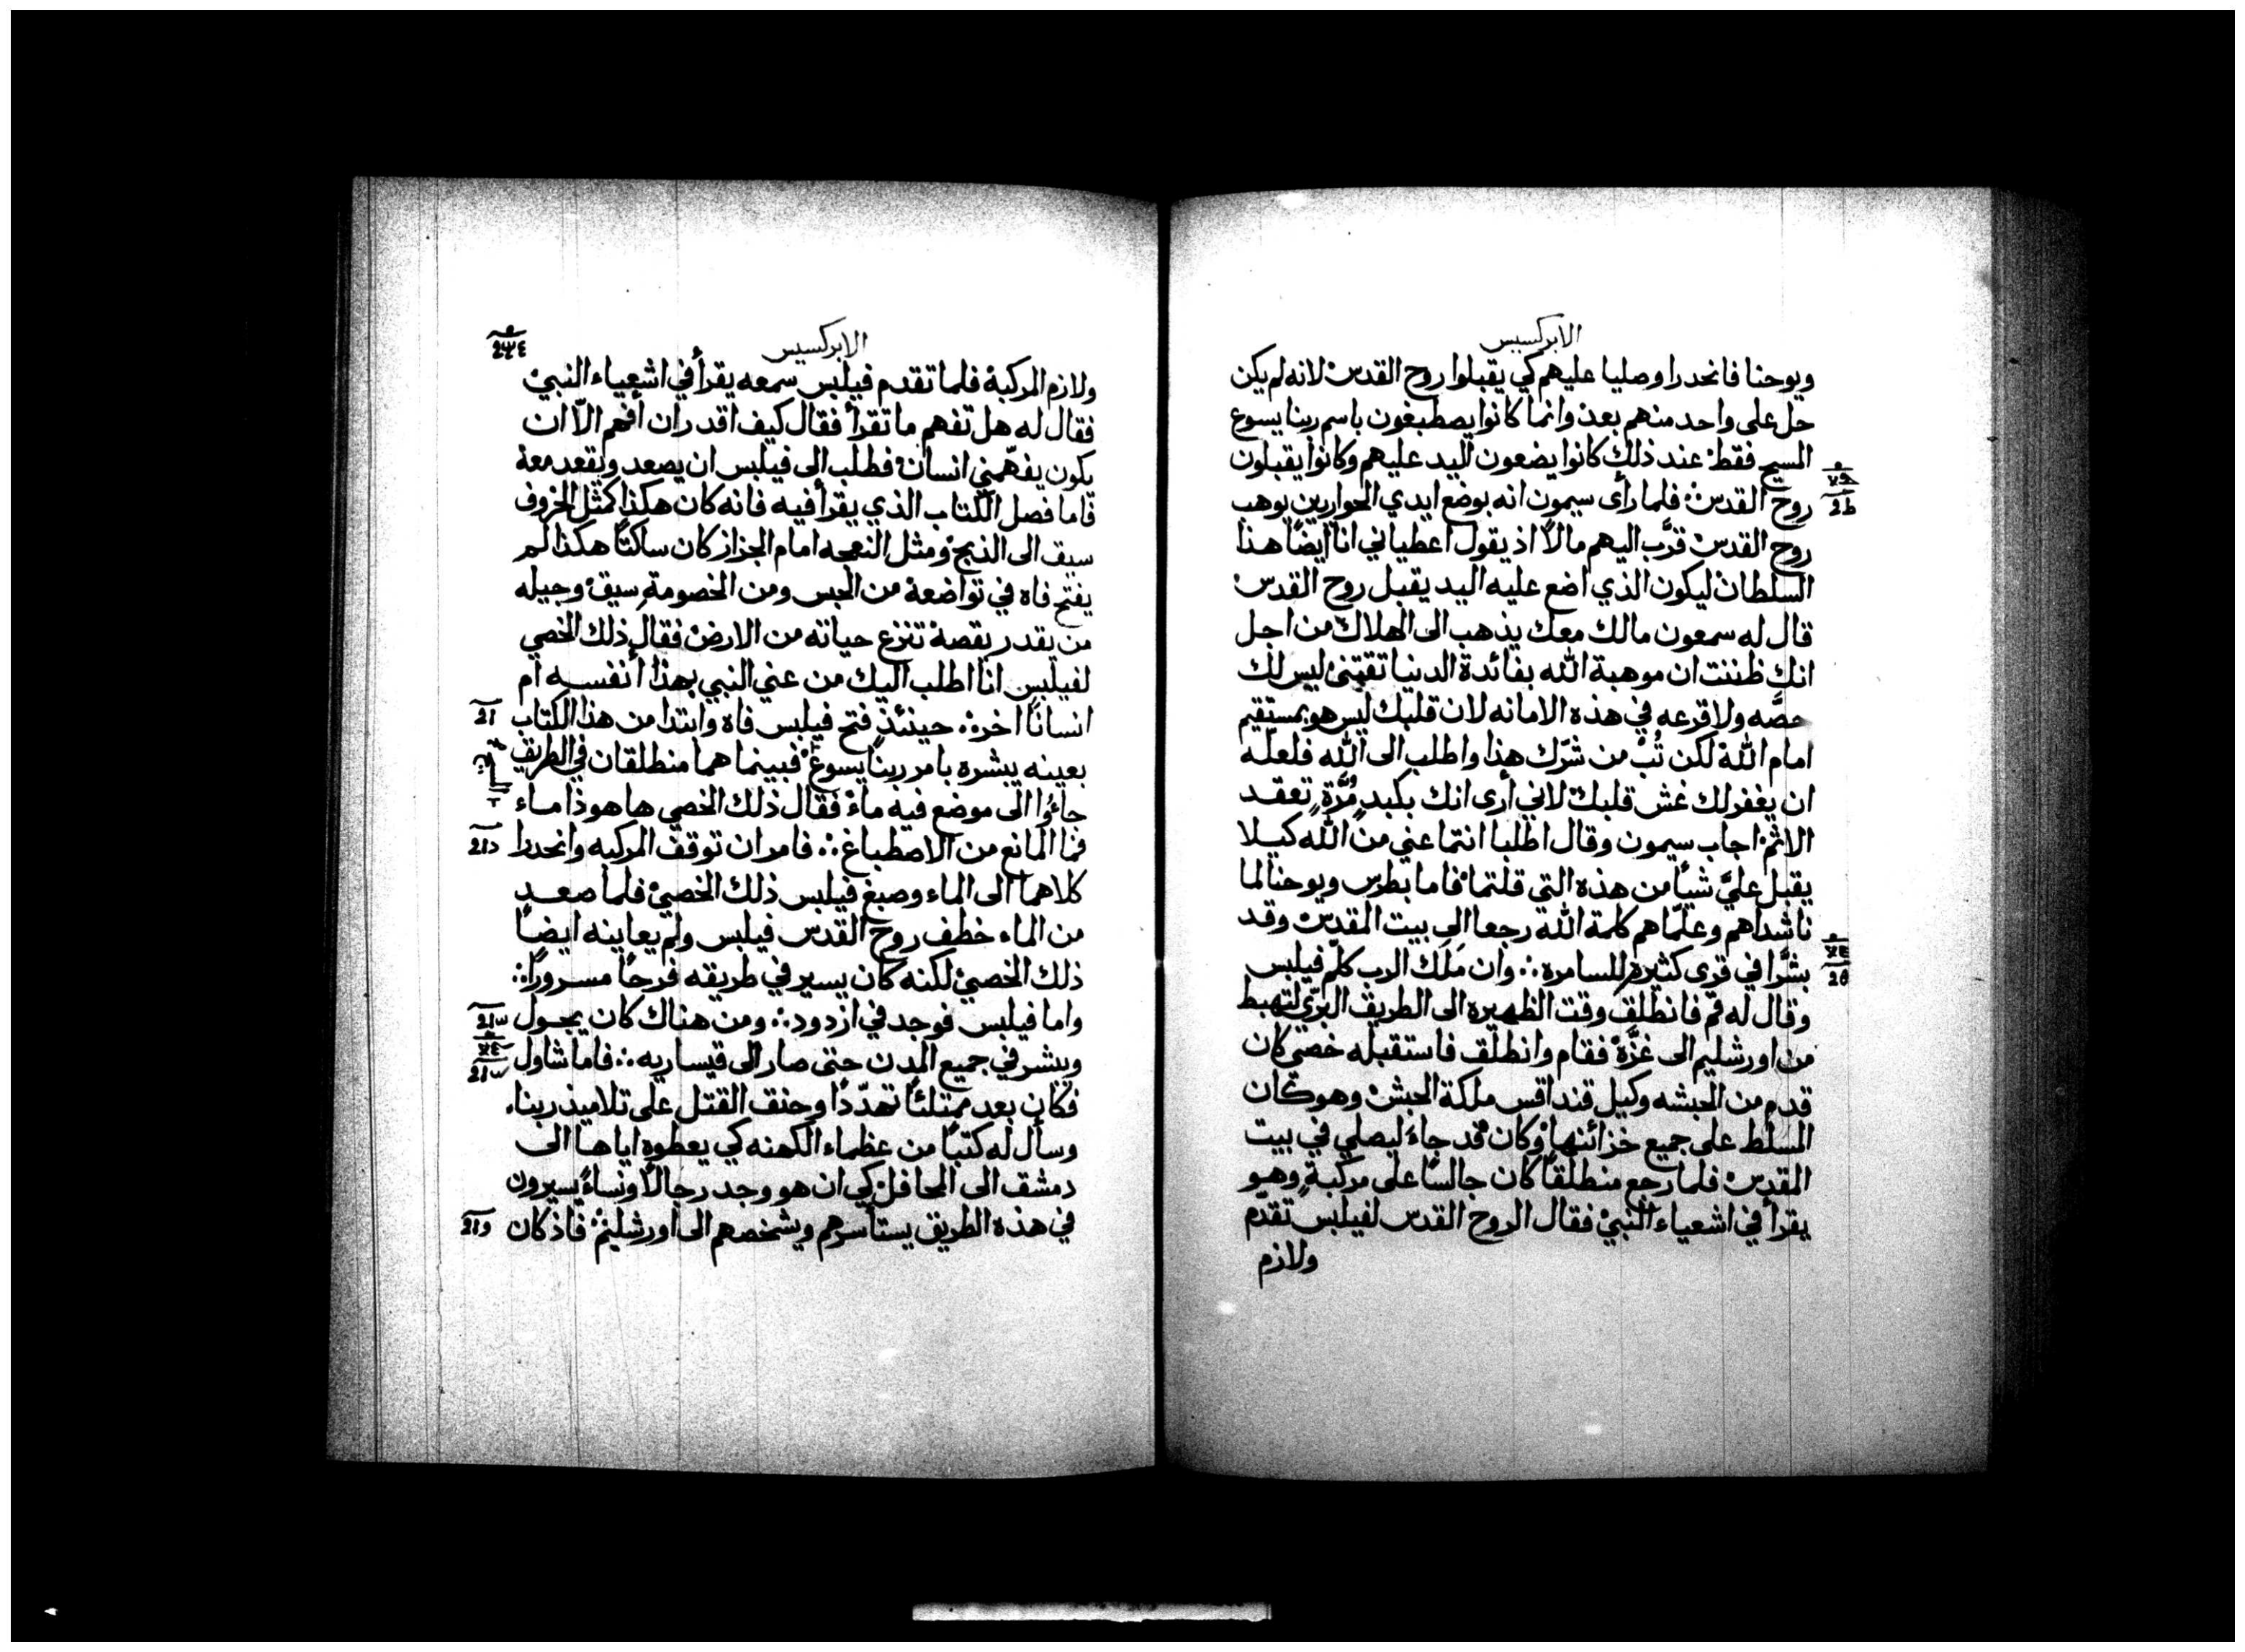 الابركسيس
ويوحنا فانحدرا وصليا عليهم كي يقبلوا روح القدس لانه لم يكن
حل على واحد منهم بعد وانما كانوا يصطبغون باسم ربنا يسوع
المسيح فقط عند ذلك كانوا يضعون اليد عليهم وكانوا يقبلون
روح القدس فلما رأى سيمون انه بوضع ايدي الحواريين يوهب
روح القدس قرّب اليهم مالاً اذ يقول اعطياني انا ايضًا هذا
السلطان ليكون الذي اضع عليه اليد يقبل روح القدس
قال له سمعون مالك معك يذهب الى الهلاك من اجل
انك ظننت ان موهبة الله بفائدة الدنيا تقتنئ ليس لك
حصّه ولا قرعه في هذه الامانه لان قلبك ليس هو بمستقيم
امام الله لكن تُبْ من شرّك هذا واطلب الى الله فلعله
ان يغفر لك غش قلبك لاني أرى انك بكبد مُرّةٍ تعقد
الاثم اجاب سيمون وقال اطلبا انتما عني من الله كيلا
يقبل عليَّ شيئًا من هذه التي قلتما فاما بطرس ويوحنا لما
ناشداهم وعلّماهم كلمة الله رجعا الى بيت المقدس وقد
بشّرا في قرى كثيرة للسامره وان ملَك الرب كلّم فيلبس
وقال له قم فانطلق وقت الظهيره الى الطريق البري لتهبط
من اورشليم الى غزّة فقام وانطلق فاستقبله خصي كان
قدم من الحبشه وكيل قنداقس ملكة الحبش وهو كان
المسلط على جميع خزائنها وكان قد جاء ليصلي في بيت
المقدس فلما رجع منطلقًا كان جالسًا على مركبةٍ وهو
يقرأ في اشعياء النبي فقال الروح القدس لفيلبس تقدّم
ولازم
الابركسيس
ولازم المركبة فلما تقدم فيلبس سمعه يقرأ في اشعياء النبي
فقال له هل تفهم ما تقرأ فقال كيف اقدر ان أفهم الّا ان
يكون يفهّمني انسان فطلب الى فيلبس ان يصعد ويقعد معه
فاما فصل الكتاب الذي يقرأ فيه فانه كان هكذا كمثل الخروف
سيق الى الذبح ومثل النعجه امام الجزاز كان ساكتًا هكذا لم
يفتح فاه في تواضعه من الحبس ومن الخصومة سيق وجيله
من يقدر يقصه تنزع حياته من الارض فقال ذلك الخصي
لفيلبس انا اطلب اليك من عني النبي بهذا أنفسه ام
انسانًا اخر حينئذٍ فتح فيلبس فاه وابتدا من هذا الكتاب
بعينه يبشره بامر ربنا يسوع فبينما هما منطلقان في الطريق
جاؤا الى موضع فيه ماء فقال ذلك الخصي ها هوذا ماء
فما المانع من الاصطباغ فامر ان توقف المركبه وانحدرا
كلاهما الى الماء وصبغ فيلبس ذلك الخصي فلما صعد
من الماء خطف روح القدس فيلبس ولم يعاينه ايضًا
ذلك الخصي لكنه كان يسير في طريقه فرحًا مسرورًا
واما فيلبس فوجد في ازدود ومن هناك كان يجول
ويبشر في جميع المدن حتى صار الى قيساريه فاما شاول
فكان بعد ممتلئًا تهدّدًا وحنق القتل على تلاميذ ربنا
وسأل له كتبًا من عظماء الكهنه كي يعطوه اياها الى
دمشق الى المحافل كي ان هو وجد رجالاً ونساءً يسيرون
في هذه الطريق يستأسرهم ويشخصهم الى اورشليم فاذ كان